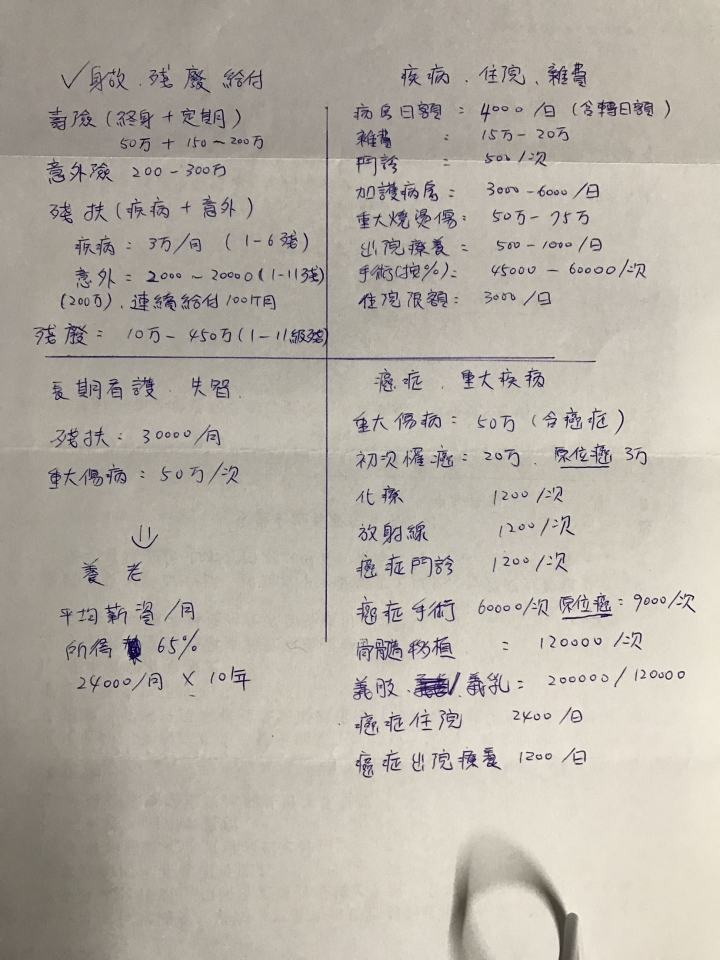 ✓身故、殘廢給付
壽險(終身+定期)
50万+150~200万
意外險 200-300万
殘扶(疾病+意外)
疾病:3万/月 (1-6殘)
意外:2000~20000(1-11殘)
(200万)、連續給付100个月
殘廢:10万-450万(1-11級殘)
疾病、住院、雜費
病房日額:4000/日(含轉日額)
雜費:15万-20万
門診:500/次
加護病房:3000-6000/日
重大燒燙傷:50万-75万
出院療養=500-1000/日
手術(按%):45000-60000/次
住院限額:3000/日
長期看護、失智、
殘扶:30000/月
重大傷病:50万/次
養老
平均薪資/月
所得 65%
24000/月×10年
癌症、重大疾病
重大傷病:50万(含癌症)
初次罹癌:20万、原位癌3万
化療 1200/次
放射線 1200/次
癌症門診 1200/次
癌症手術 60000/次 原位癌:9000/次
骨髓移植=120000/次
義肢、義乳=200000/120000
癌症住院 2400/日
癌症出院療養1200/日